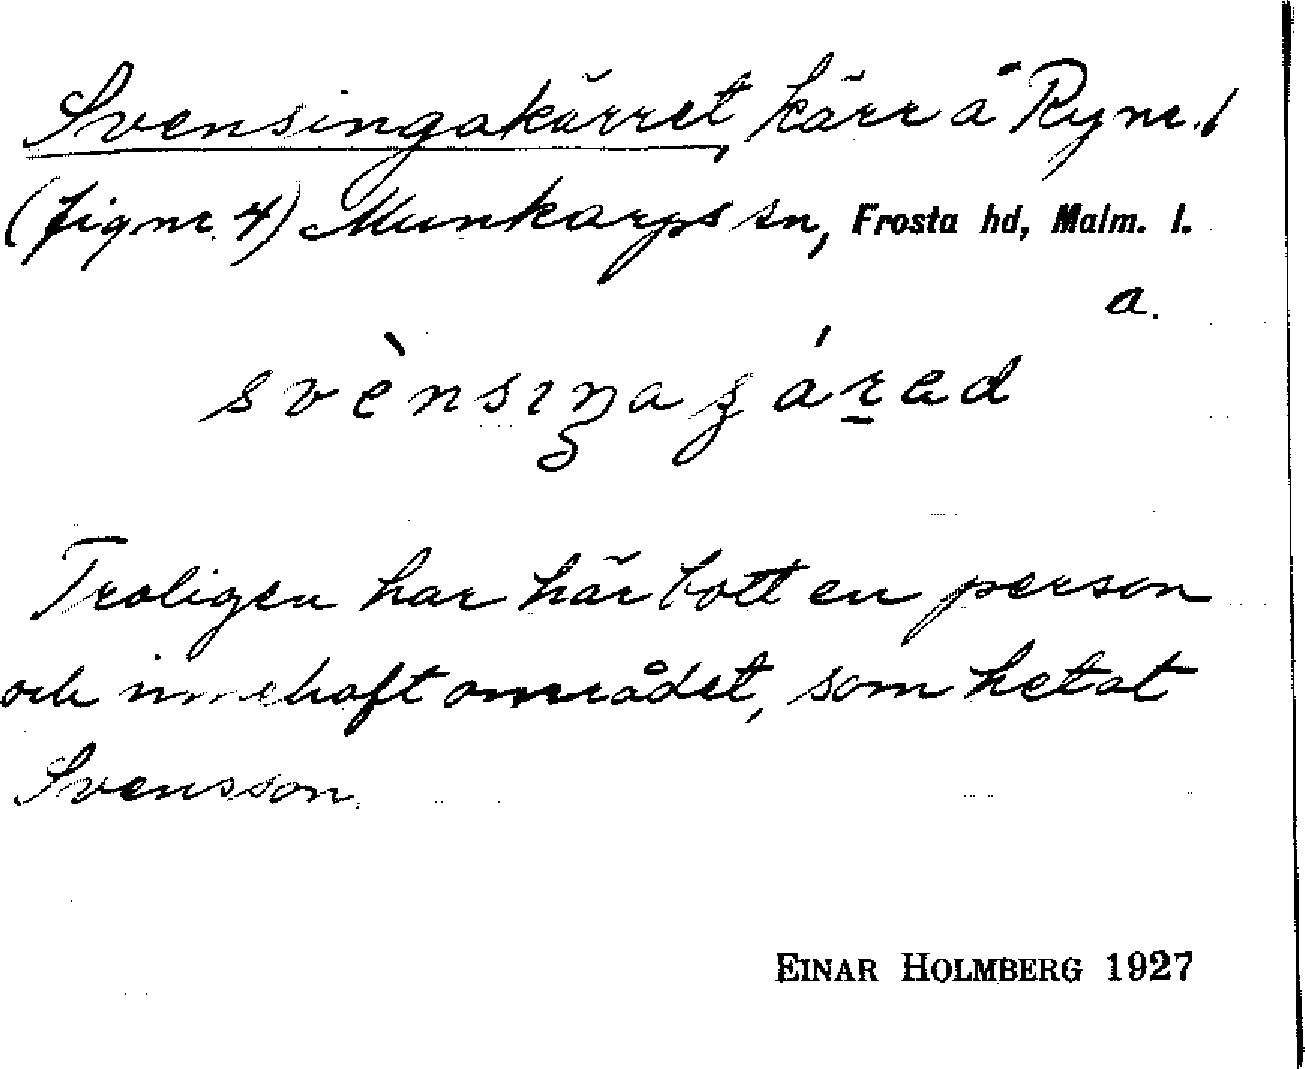 Svensingakärret, kärr å Ry nr. 1
(fig nr. 4) Munkarps sn, Frosta hd, Malm. l.
a.
Troligen har här bott en person
och innehaft området, som hetat
Svensson.
EINAR HOLMBERG 1927